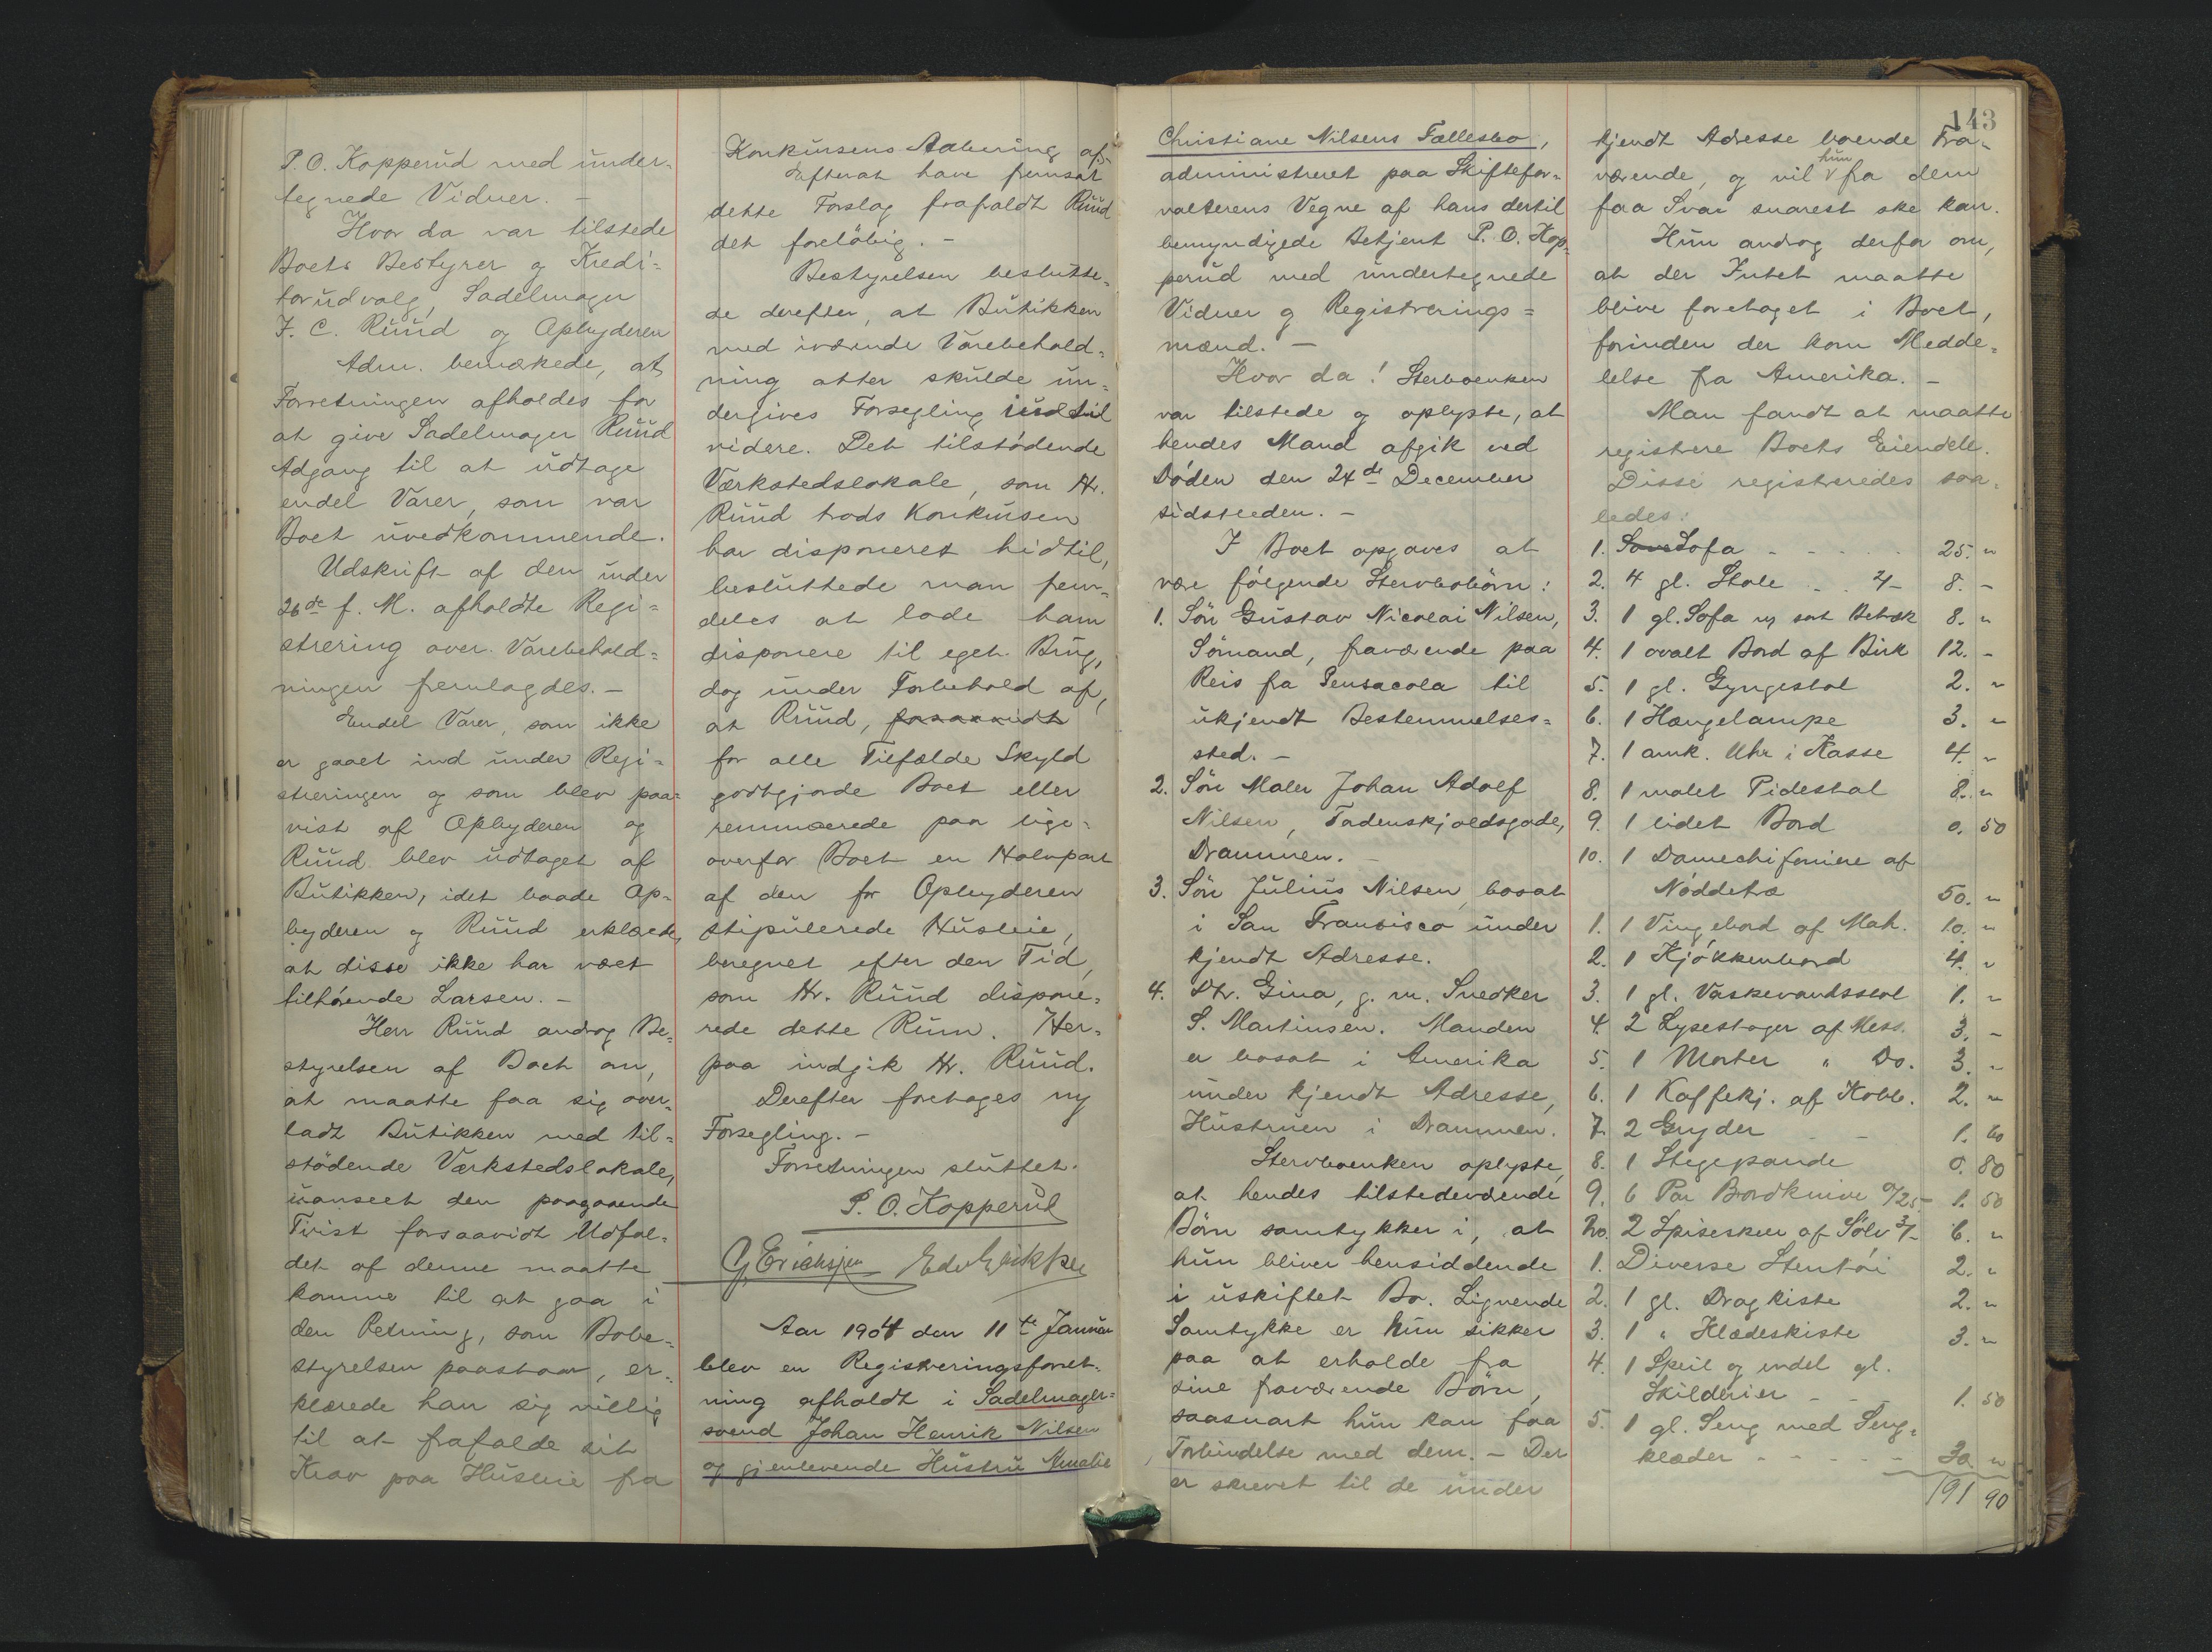 P. O. Kopperud med under-
tegnede Vidner. -
Hvor da var tilstede
Boets Bestyrer og Kredi=
torudvalg, Sadelmager
F. C. Ruud og Opbyderen
Adm. bemærkede, at
Forretningen afholdes for
at give Sadelmager Ruud
Adgang til at udtage
endel Varer, som var
Boet uvedkommende.
Udskrift af den under
26de f. M. afholdte Regi=
strering over Varebehold=
ningen fremlagdes. -
Endel Varer, som ikke
er gaaet ind under Regi=
streringen og som blev paa=
vist af Opbyderen og
Ruud blev udtaget af
Butikken, idet baade Op=
byderen og Ruud erklærede,
at disse ikke har været
tilhørende Larsen. -
Herr Ruud androg Be=
styrelsen af Boet om,
at maatte faa sig over=
ladt Butikken med til=
stødende Værkstedslokale,
uanseet den paagaaende
Tvist forsaavidt Udfal=
det af denne maatte
komme til at gaa i
den Retning, som Bobe=
styrelsen paastaar, er=
klærede han sig villig
til at frafalde sit
Krav paa Husleie fra
Konkursens Aabning af.
Efterat have fremsat
dette Forslag frafaldt Ruud
det foreløbig. -
Bestyrelsen beslutte=
de derefter, at Butikken
med iværende Varebehold=
ning atter skulde un=
dergives Forsegling indtil
videre. Det tilstødende
Værkstedslokale, som Hr.
Ruud trods Konkursen
har disponeret hidtil,
besluttede man frem=
deles at lade ham
disponere til eget Brug,
dog under Forbehold af,
at Ruud, forsaavidt
for alle Tilfælde Skyld
godtgjorde Boet eller
remunerede paa lige=
overfor Boet en Halvpart
af den for Opbyderen
stipulerede Husleie,
beregnet efter den Tid,
som Hr. Ruud dispone=
rede dette Rum. Her=
paa indgik Hr. Ruud.
Derefter foretages ny
Forsegling. -
Forretningen sluttet.
P. O. Kopperud
G. Erichsen
Aar 1904 den 11te Januar
blev en Registreringsforret=
ning afholdt i Sadelmager=
svend Johan Henrik Nilsen
og gjenlevende Hustru Amalie
143
Christiane Nilsens Fællesbo,
administreret paa Skiftefor=
valterens Vegne af hans dertil
bemyndigede Betjent P. O. Kop=
perud med undertegnede
Vidner og Registrerings=
mænd. -
Hvor da! Sterboenken
var tilstede og oplyste, at
hendes Mand afgik ved
Døden den 24de December
sidstleden. -
I Boet opgaves at
være følgende Stervbobørn:
1. Søn Gustav Nicolai Nilsen,
Sømand, fraværende paa
Reis fra Pensacola til
ukjendt Bestemmelses=
sted. -
2. Søn Maler Johan Adolf
Nilsen, Tordenskjoldsgade,
Drammen. -
3. Søn Julius Nilsen, bosat
i San Fransisco under
kjendt Adresse.
4. Dtr. Gina, g. m. Snedker
S. Martinsen. Manden
er bosat i Amerika
under kjendt Adresse,
Hustruen i Drammen.
Stervboenken oplyste,
at hendes tilstedeværende
Børn samtykker i, at
hun bliver hensiddende
i uskiftet Bo. Lignende
Samtykke er hun sikker
paa at erholde fra
sine fraværende Børn,
saasnart hun kan faa
Forbindelse med dem. - Der
er skrevet til de under
kjendt Adresse boende Fra=
værende, og vil hun fra dem
faa Svar snarest ske kan.
Hun androg derfor om,
at der Intet maatte
blive foretaget i Boet,
forinden der kom Medde=
lelse fra Amerika. -
Man fandt at maatte
registrere Boets Eiendele.
Disse registreredes saa=
ledes:
1. Sove Sofa - - - - 25. "
2. 4 gl. Stole . . 2/- 8. -
3. 1 gl. Sofa og sort Betræk 8. "
4. 1 ovalt Bord af Birk 12. -
5. 1 gl. Gyngestol 2. "
6. 1 Hængelampe 3. "
7. 1 amk. Uhr i Kasse 4. "
8. 1 malet Pidestal 8. "
9. 1 lidet Bord 0. 50
10. 1 Damechifoniere af
Nøddetræ 50. "
1. 1 Vingebord af Mah. 10. "
2. 1 Kjøkkenbord 4. "
3. 1 gl. Vaskevandsstol 1. "
4. 2 Lysestager af Mess. 3. -
5. 1 Morter " Do. 3. "
6. 1 Kaffekj. af Kobb. 2. "
7. 2 Gryder - - 1. 60
8. 1 Stegepande 0. 80
9. 6 Par Bordknive 0/25 1. 50
20. 2 Spiseskeer af Sølv 3/- 6. "
1. Diverse Stentøi 2. "
2. 1 gl. Dragkiste 2. "
3. 1 " Klædeskiste 3. "
4. 1 Speil og endel gl.
Skilderier - - 1. 50
5. 1 gl. Seng med Seng=
klæder - - - - - 30 "
191 90